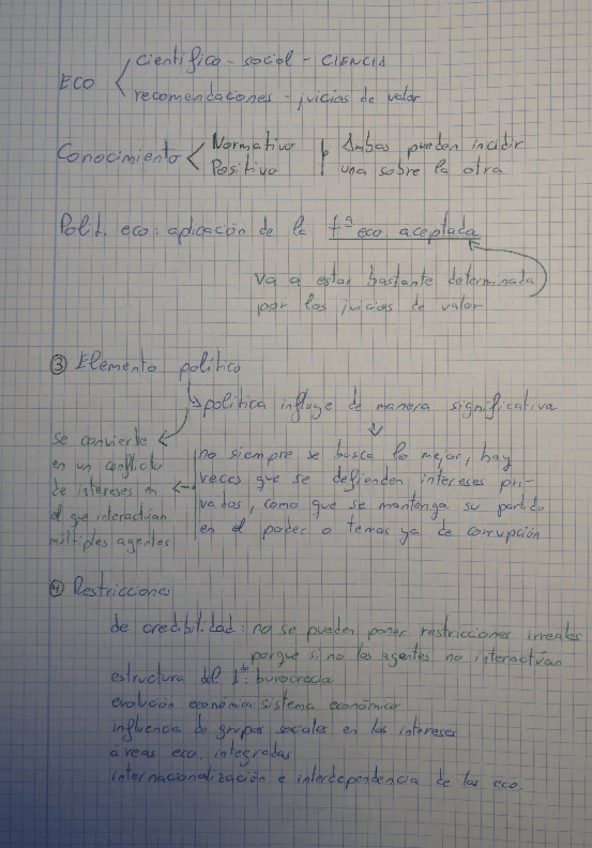 ECO
científico - social - CIENCIA
recomendaciones - juicios de valor
Conocimiento
Normativo
Positivo
Ambas pueden incidir
una sobre la otra
Polit. eco: aplicación de la tª eco aceptada
va a estar bastante determinada
por los juicios de valor
③ Elemento político
política influye de manera significativa
se convierte
en un conflicto
de intereses en
el que interactúan
múltiples agentes
no siempre se busca lo mejor, hay
veces que se defienden intereses pri-
vados, como que se mantenga su partido
en el poder o temas ya de corrupción
④ Restricciones
de credibilidad: no se pueden poner restricciones irreales
porque si no los agentes no interactúan
estructura del burocracia
evolución económica: sistema económico
influencia de grupos sociales en los intereses
áreas eco. integradas
internacionalización e interdependencia de las eco.